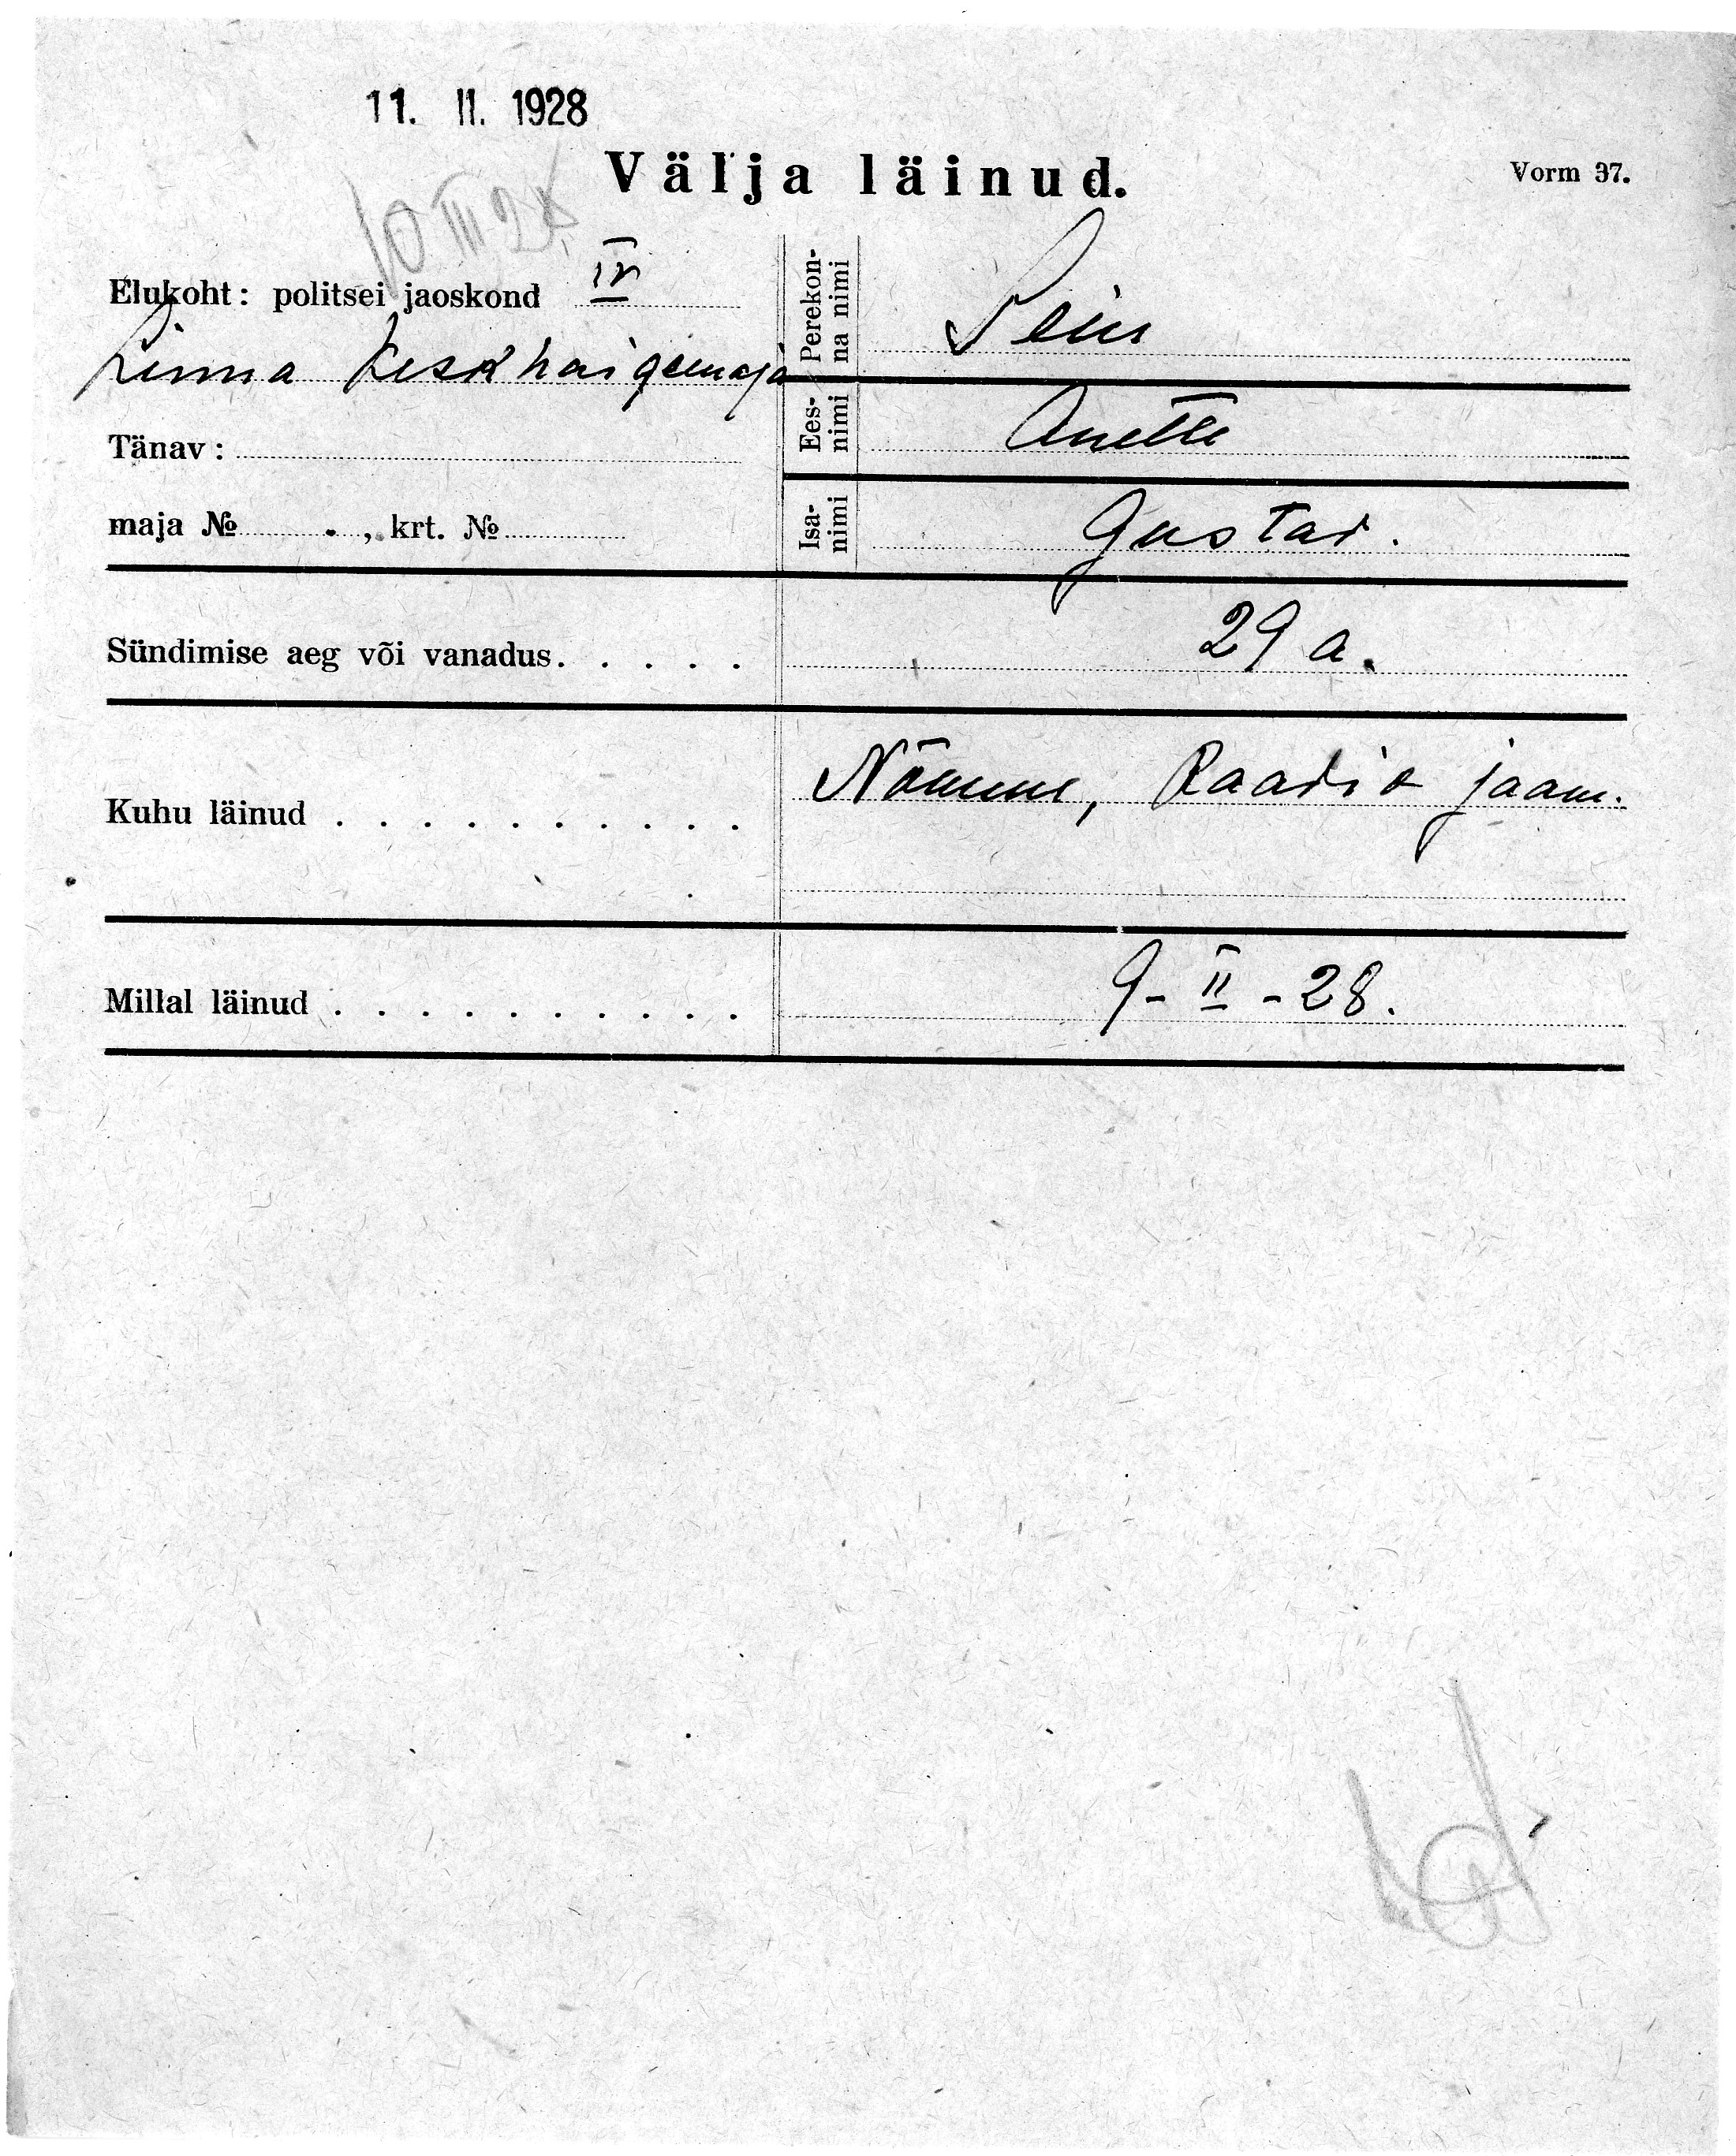 11. II. 1928
Välja läinud.
Vorm 37.
10 III 28
Elukoht: politsei jaoskond IV
Linna Keskhaigemaja
Tänav:
maja № , krt. №
Perekonna nimi
Eesnimi Anette
Isanimi Gustav.
Sündimise aeg või vanadus. . . . . 29 a.
Kuhu läinud . . . . . . . . . . Nõmme, Raadio jaam.
Millal läinud . . . . . . . . . . 9 - II - 28.